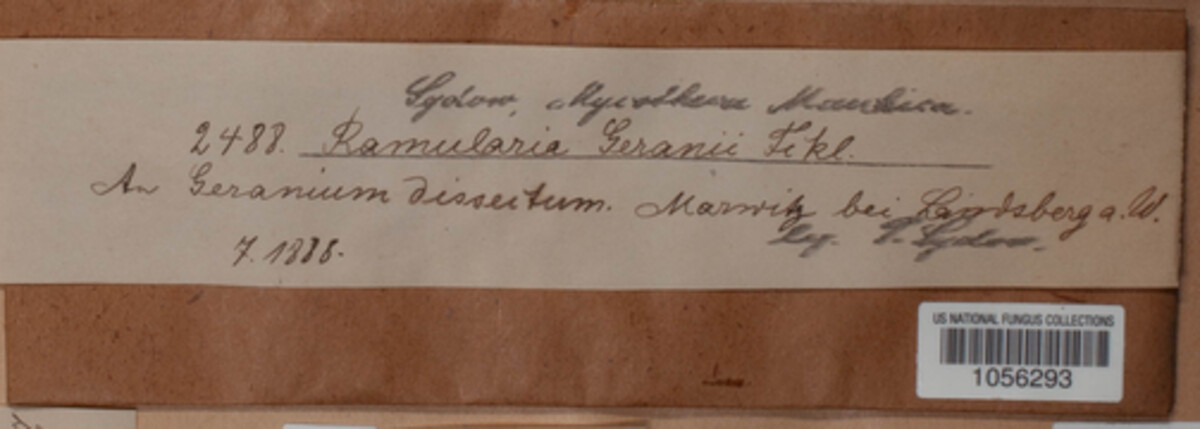 Sydow, Mycotheca Marchica.
2488. Ramularia Geranii Fckl.
An Geranium dissectum. Marwitz bei Landsberg a. W.
leg. P. Sydow.
7. 1888.
US NATIONAL FUNGUS COLLECTIONS
1056293